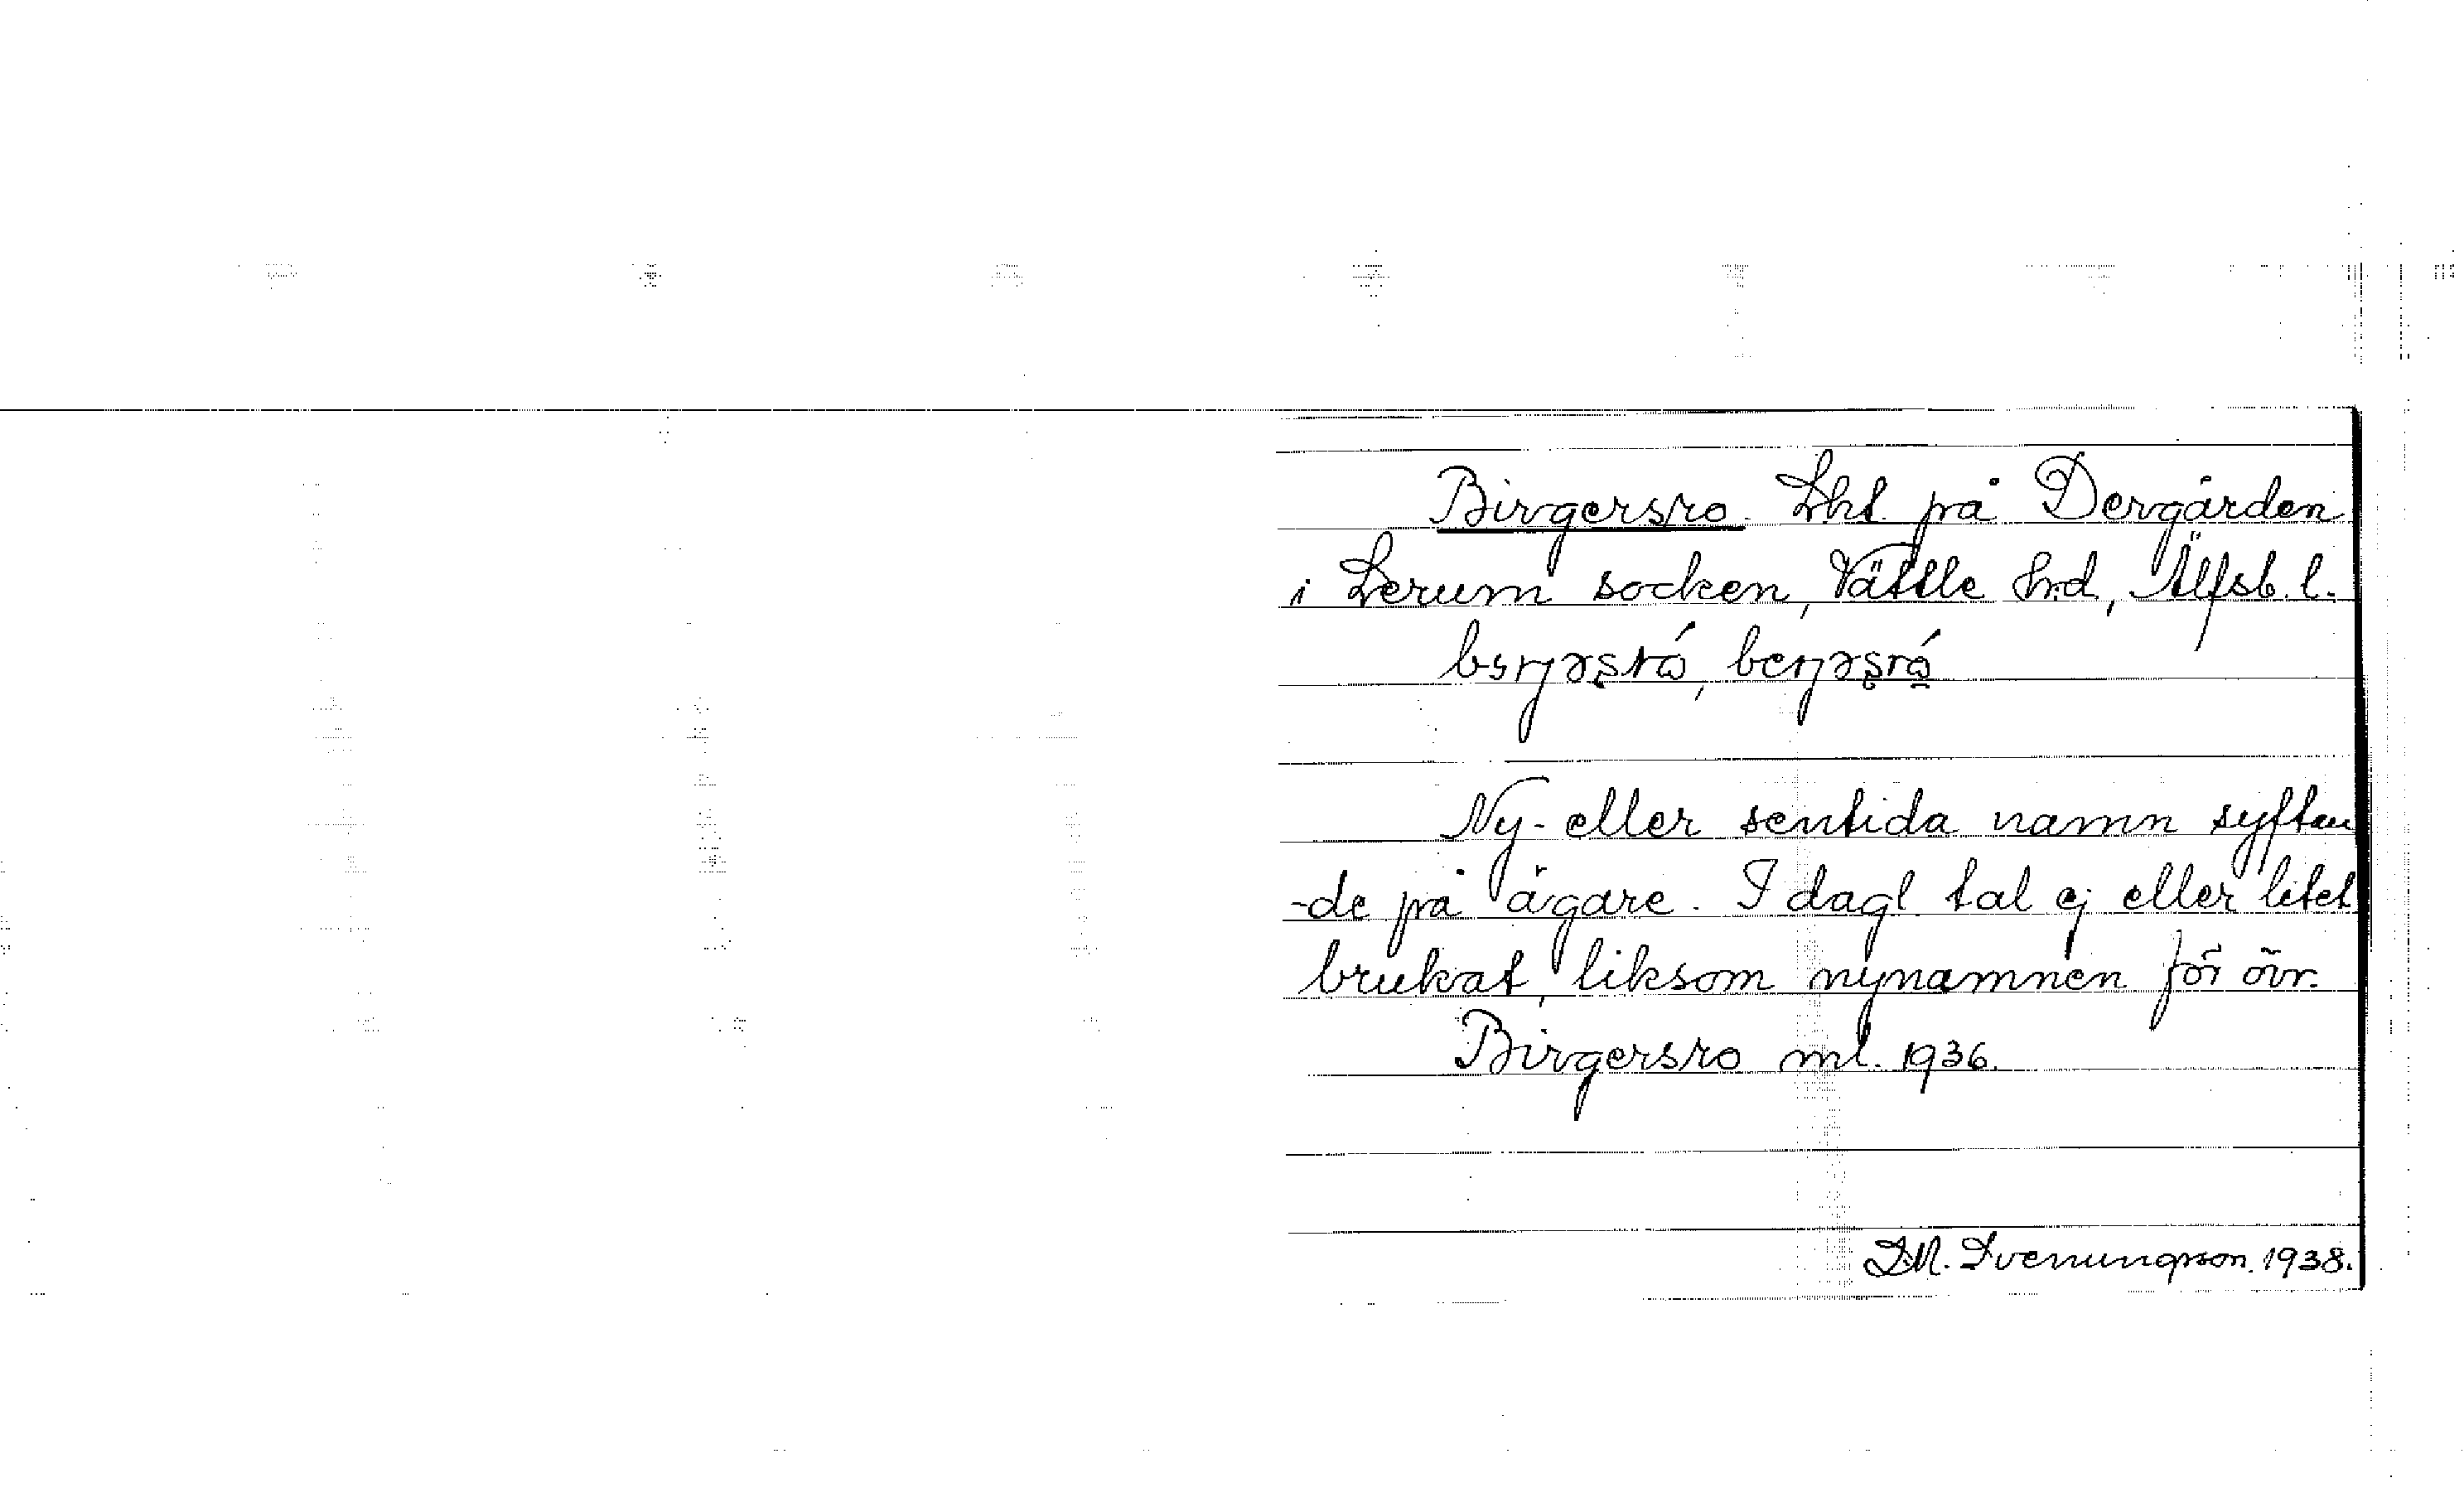 Birgersro. Lht. på Dergården
i Lerum socken, Vättle hd, Älfsb. l.
Ny- eller sentida namn syftan
-de på ägare. I dagl. tal ej eller litet
brukat, liksom nynamnen för övr.
Birgersro ml. 1936.
I.M. Svenungsson. 1938.